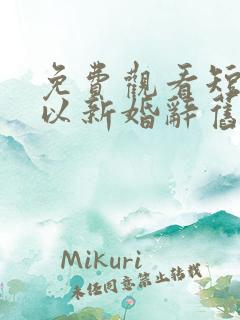 免費觀看短
以新婚辭舊
Mikuri
未经同意禁止转载